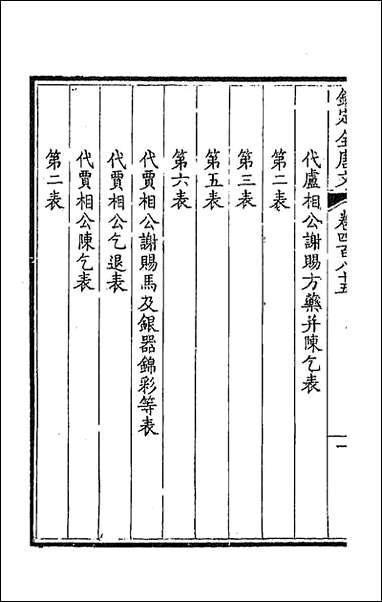 欽定全唐文 卷四百八十五 一
代盧相公謝賜方藥并陳乞表
第二表
第三表
第五表
第六表
代賈相公謝賜馬及銀器錦彩等表
代賈相公乞退表
代賈相公陳乞表
第二表